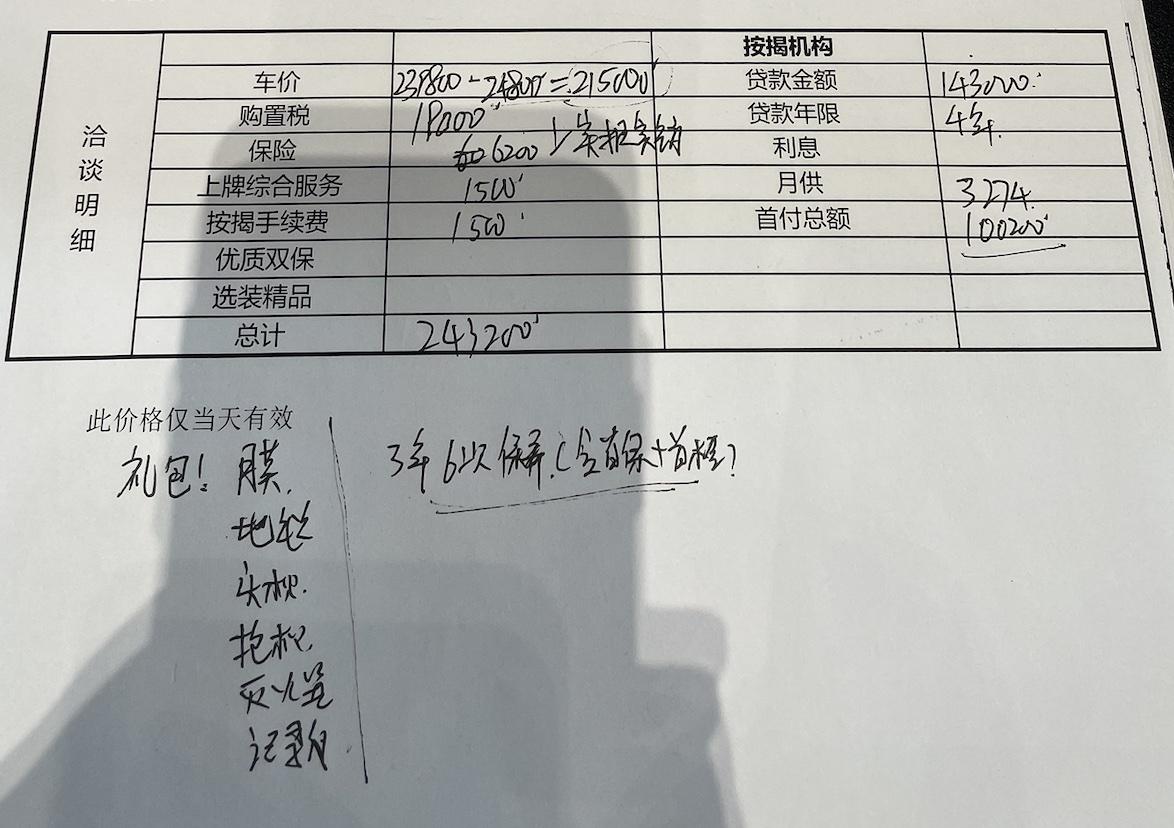 按揭机构
洽谈明细
车价 239800 - 24800 = 215000 贷款金额 143000
购置税 19000 贷款年限 4年
保险 6200 实报实销 利息
上牌综合服务 1500 月供 3274
按揭手续费 1500 首付总额 100200
优质双保
选装精品
总计 243200
此价格仅当天有效
礼包! 膜. 3年6次保养.(含首保+首检)
地毯
头枕.
抱枕.
灭火器
记录仪